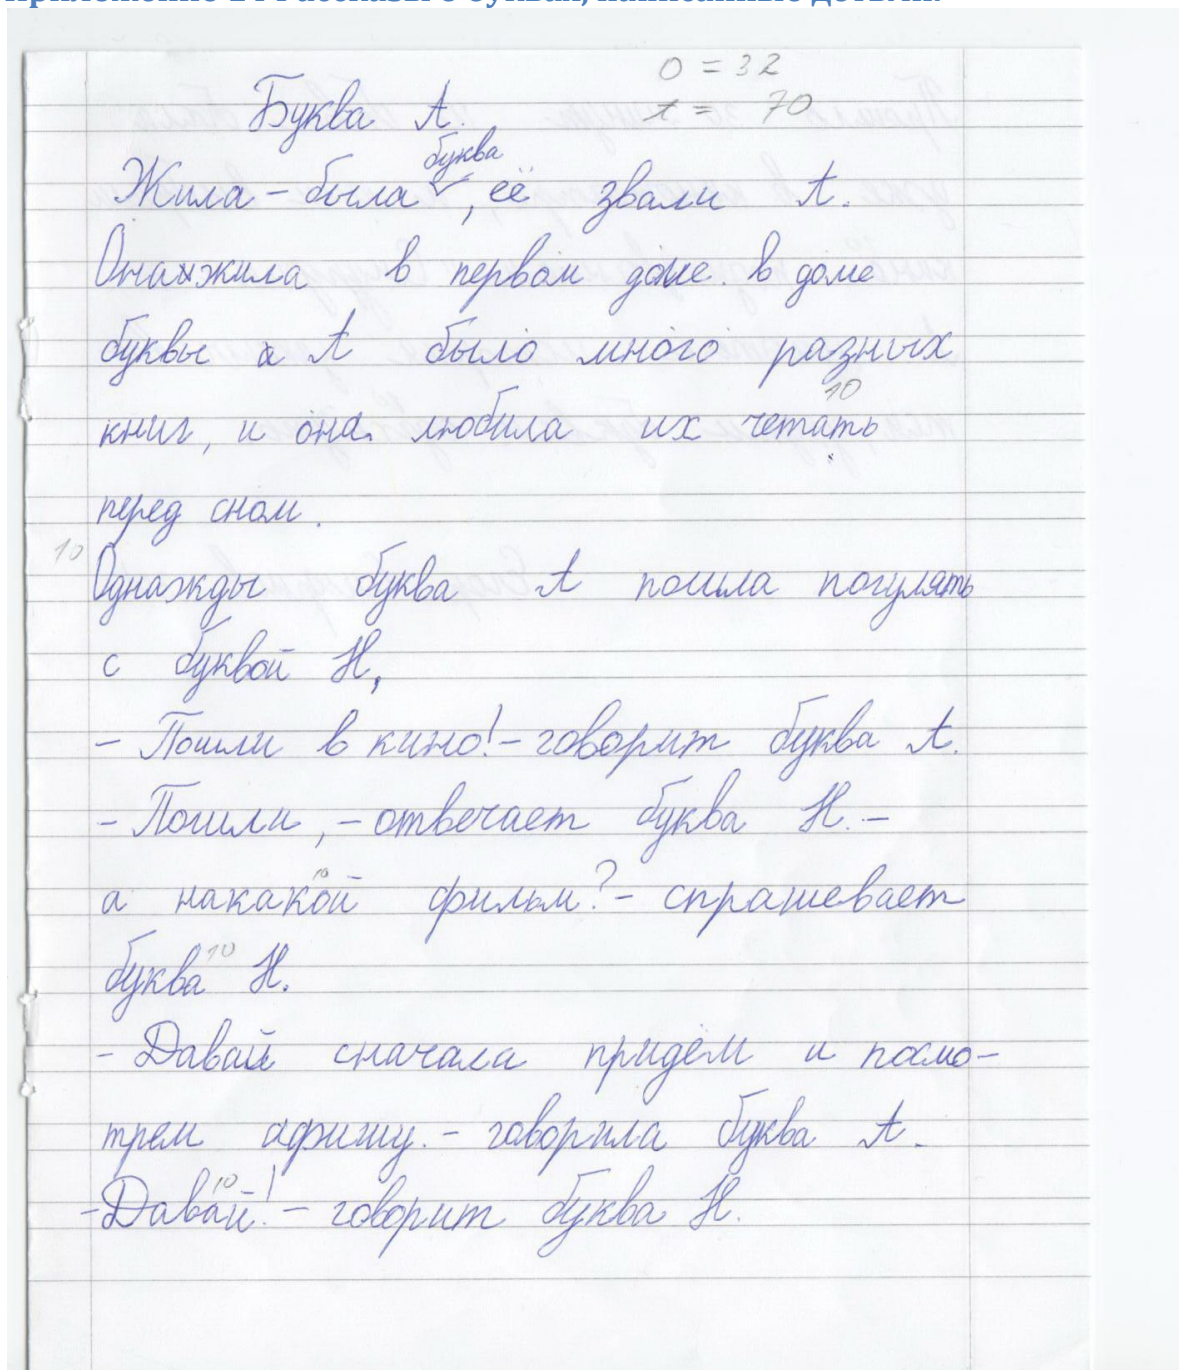 Приложение 14 Рассказы о буквах, написанные детьми.
О = 32
t = 70
Буква А.
буква
Жила-была ✓, её звали А.
Она жила в первом доме. в доме
буквы а А было много разных
10
книг, и она любила их четать
перед сном.
10 Однажды буква А пошла погулять
с буквой Н,
- Пошли в кино! - говорит буква А.
- Пошли, - отвечает буква Н. -
10
а накакой фильм? - спрашевает
10
буква Н.
- Давай сначала придём и посмо-
трем афишу. - говорила буква А.
10
- Давай! - говорит буква Н.